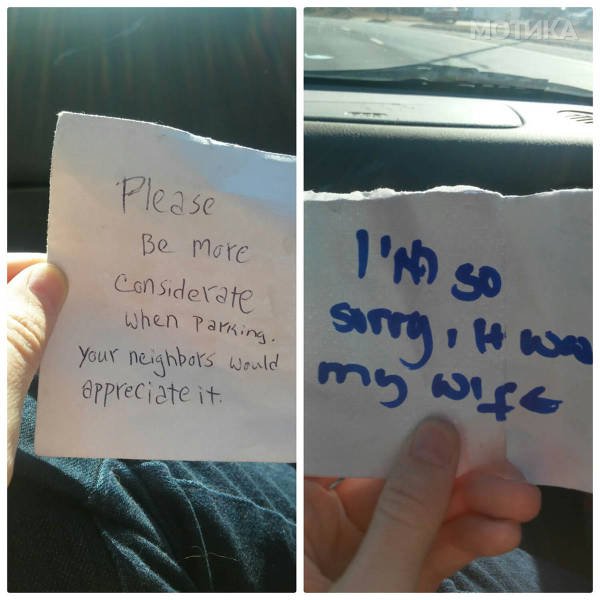 Please
Be more
considerate
when parking.
your neighbors would
appreciate it.
МОТИКА
I'm so
sorry, it was
my wife